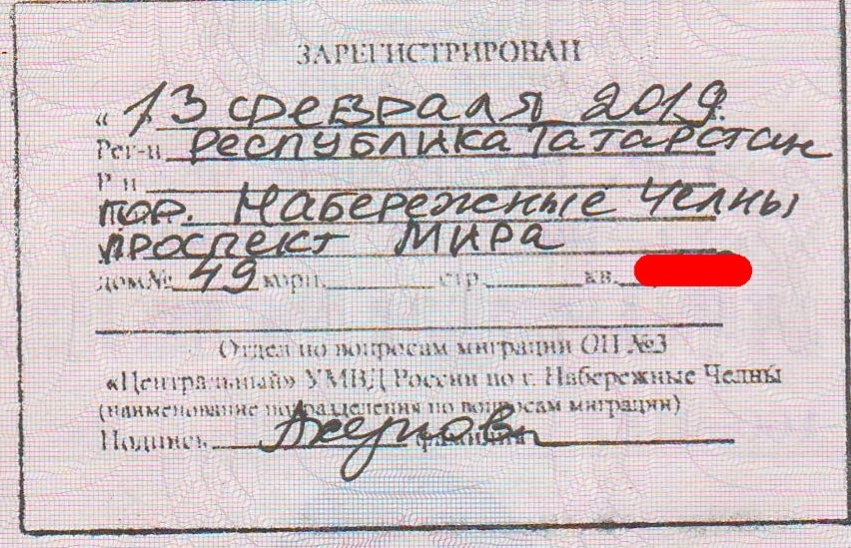 ЗАРЕГИСТРИРОВАН
« 13 февраля 2019.
Рег-н Республика Татарстан
Р-н
гор. Набережные Челны
проспект Мира
дом№ 49 корп. стр. кв.
Отдел по вопросам миграции ОП №3
«Центральный» УМВД России по г. Набережные Челны
(наименование подразделения по вопросам миграции)
Подпись фамилия